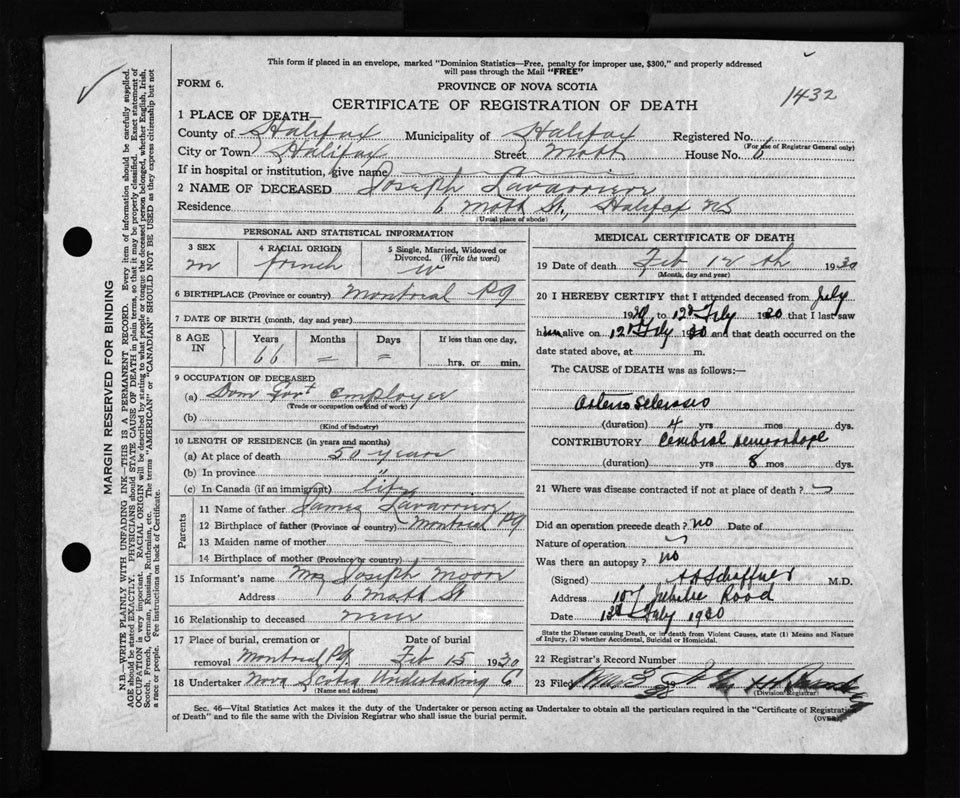 This form if placed in an envelope, marked "Dominion Statistics—Free, penalty for improper use, $300," and properly addressed
will pass through the Mail "FREE"
FORM 6.
PROVINCE OF NOVA SCOTIA
1432
CERTIFICATE OF REGISTRATION OF DEATH
1 PLACE OF DEATH—
County of Halifax Municipality of Halifax Registered No.
(For use of Registrar General only)
City or Town Halifax Street Mott House No. 6
If in hospital or institution, give name
2 NAME OF DECEASED Joseph
Residence 6 Mott St, Halifax NS
(Usual place of abode)
PERSONAL AND STATISTICAL INFORMATION
3 SEX 4 RACIAL ORIGIN 5 Single, Married, Widowed or Divorced. (Write the word)
m french w
6 BIRTHPLACE (Province or country) Montreal PQ
7 DATE OF BIRTH (month, day and year)
8 AGE IN Years Months Days If less than one day,
66 = =
hrs. or min.
9 OCCUPATION OF DECEASED
(a) Dom Gov't
(Trade or occupation or kind of work)
(b)
(Kind of industry)
10 LENGTH OF RESIDENCE (in years and months)
(a) At place of death 50 years
(b) In province "
(c) In Canada (if an immigrant) life
Parents
11 Name of father
12 Birthplace of father (Province or country) Montreal PQ
13 Maiden name of mother
14 Birthplace of mother (Province or country)
15 Informant's name Mrs Joseph
Address 6 Mott St
16 Relationship to deceased
17 Place of burial, cremation or removal Montreal PQ Date of burial Feb 15 1930
18 Undertaker Nova Scotia Undertaking C
(Name and address)
MEDICAL CERTIFICATE OF DEATH
19 Date of death Feb 12 th 1930
(Month, day and year)
20 I HEREBY CERTIFY that I attended deceased from July
19 to 12th Feby 1930 that I last saw
him alive on 12th Feby 1930 and that death occurred on the
date stated above, at m.
The CAUSE of DEATH was as follows:—
Arterio Sclerosis
(duration) 4 yrs mos dys.
CONTRIBUTORY Cerebral Hemorrhage
(duration) yrs 8 mos dys.
21 Where was disease contracted if not at place of death?
Did an operation precede death? no Date of
Nature of operation
Was there an autopsy? no
(Signed) Schaffner M.D.
Address 107 Jubilee Road
Date 13th Feby 1930
State the Disease causing Death, or in death from Violent Causes, state (1) Means and Nature
of Injury, (2) whether Accidental, Suicidal or Homicidal.
22 Registrar's Record Number
23 Filed
(Division Registrar)
Sec. 46—Vital Statistics Act makes it the duty of the Undertaker or person acting as Undertaker to obtain all the particulars required in the "Certificate of Registration
of Death" and to file the same with the Division Registrar who shall issue the burial permit.
(OVER)
MARGIN RESERVED FOR BINDING
N.B.—WRITE PLAINLY WITH UNFADING INK—THIS IS A PERMANENT RECORD. Every item of information should be carefully supplied.
AGE should be stated EXACTLY. PHYSICIANS should STATE CAUSE OF DEATH in plain terms, so that it may be properly classified. Exact statement of
OCCUPATION is very important. RACIAL ORIGIN will be described by stating to what people or tongue the deceased person belonged, whether English, Irish,
Scotch, French, German, Russian, Ruthenian, etc. The terms "AMERICAN" or "CANADIAN" SHOULD NOT BE USED as they express citizenship but not
a race or people. Fee instructions on back of Certificate.